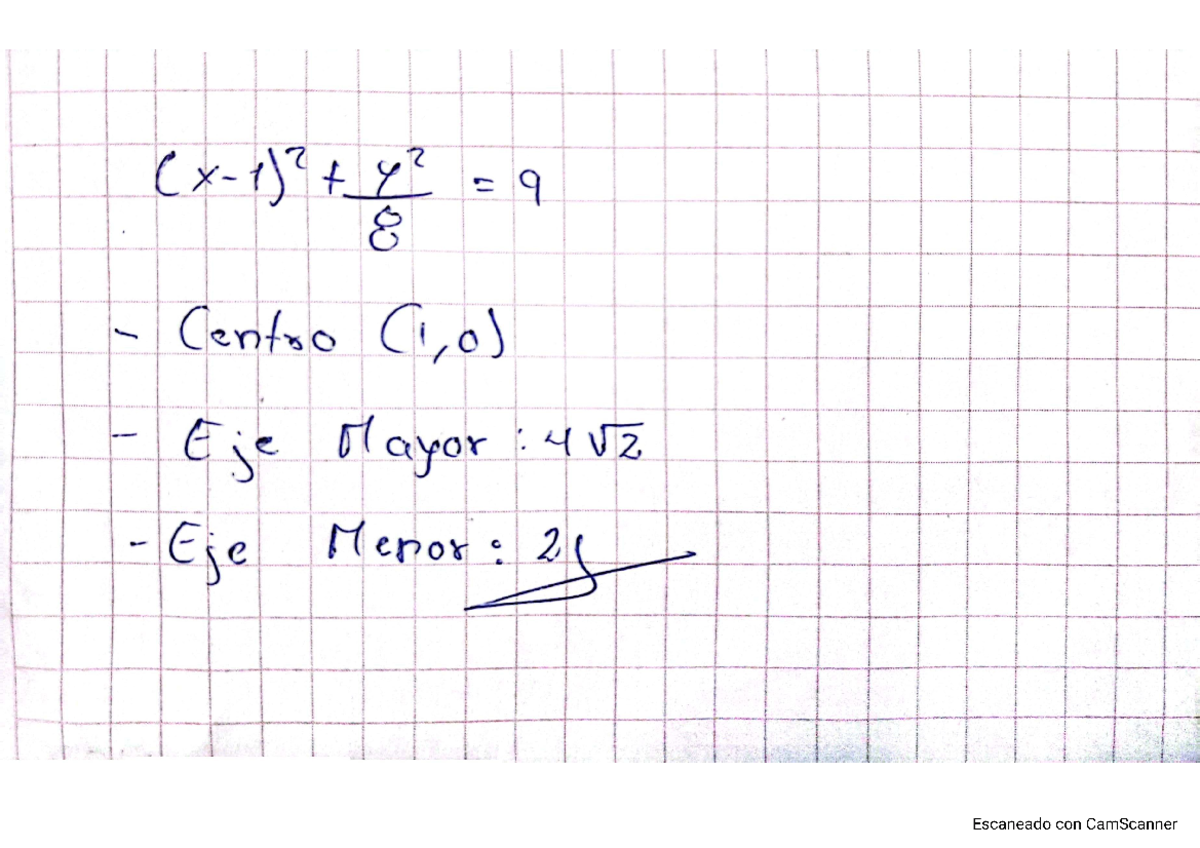 (x-1)² + y²/8 = 9
- Centro (1,0)
- Eje Mayor: 4√2
- Eje Menor: 2
Escaneado con CamScanner